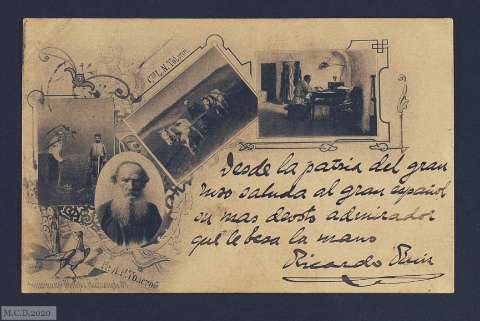 Гр. Л. Н. Толстой
Desde la patria del gran
ruso saluda al gran español
su mas devoto admirador
que le besa la mano
Ricardo Ruiz
Гр. Л. Н. Толстой
M.C.D.2020